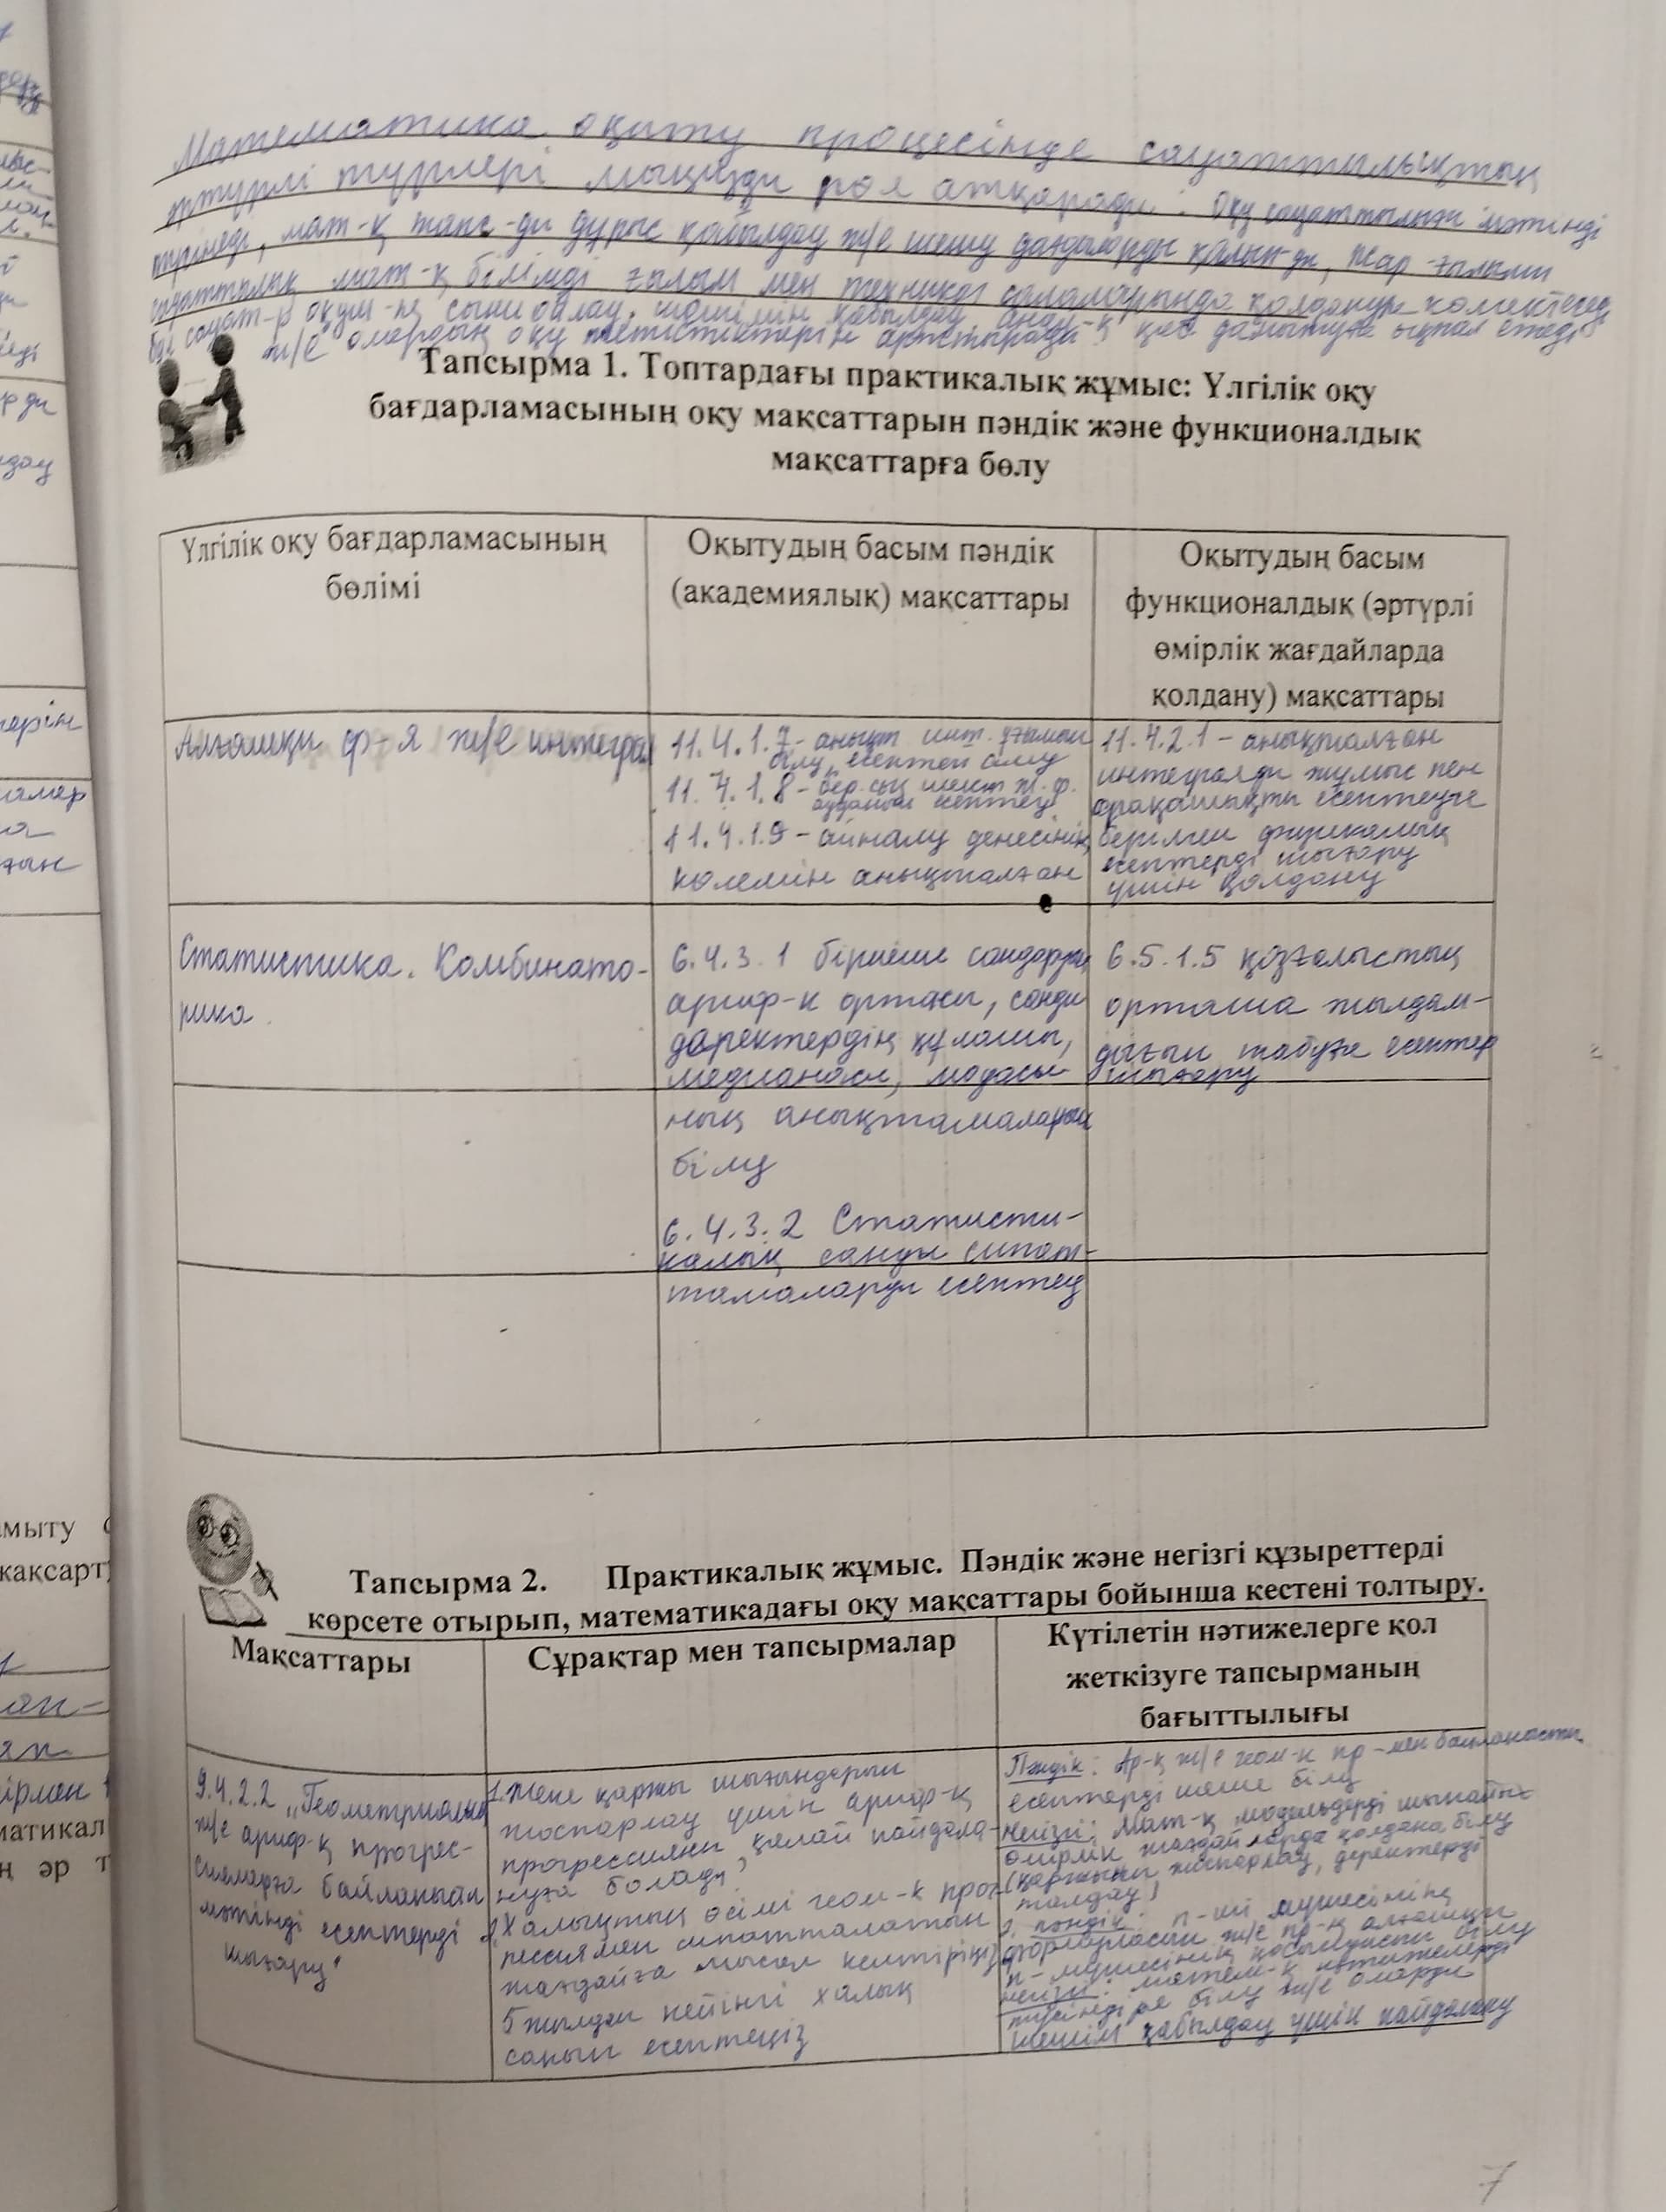 Математика оқыту процесінде сауаттылықтың
әртүрлі түрлері маңызды рөл атқарады. Оқу сауаттылығы мәтінді
түсінеді, мат-қ тапс-ды дұрыс қабылдау ж/е шешу дағдыларды қалып-ды, жар-ғылыми
сауаттылық мат-қ білімді ғылым мен техника салаларында қолдануға көмектеседі
бұл сауат-р оқуш-ң сыни ойлау, шешімін қабылдау қаб дамытуға ықпал етеді
ж/е олардың оқу жетістіктерін арттырады
Тапсырма 1. Топтардағы практикалық жұмыс: Үлгілік оқу
бағдарламасының оқу мақсаттарын пәндік және функционалдық
мақсаттарға бөлу
Үлгілік оқу бағдарламасының
бөлімі
Оқытудың басым пәндік
(академиялық) мақсаттары
Оқытудың басым
функционалдық (әртүрлі
өмірлік жағдайларда
қолдану) мақсаттары
Алғашқы ф-я ж/е интеграл
11.4.1.7- анықт инт. ұғымын
білу, есептей алу
11.4.1.8 - бер. сыз шект ж.ф.
ауданын есептеу
11.4.1.9 - айналу денесінің
көлемін анықталған
11.4.2.1 - анықталған
интегралды жұмыс пен
арақашықты есептеуге
берілген физикалық
есептерді шығару
үшін қолдану
Статистика. Комбинато-
рика
6.4.3.1 бірнеше сандардың
ариф-к ортасы, санды
деректердің құлашы,
медианасы, модасы-
ның анықтамаларын
білу
6.4.3.2 Статисти-
калық санды сипат-
тамаларды есептеу
6.5.1.5 қозғалыстың
орташа жылдам-
дығын табуға есептер
шығару
Тапсырма 2. Практикалық жұмыс. Пәндік және негізгі құзыреттерді
көрсете отырып, математикадағы оқу мақсаттары бойынша кестені толтыру.
Мақсаттары
Сұрақтар мен тапсырмалар
Күтілетін нәтижелерге қол
жеткізуге тапсырманың
бағыттылығы
9.4.2.2 „Геометриялық
ж/е ариф-қ прогрес-
сияларға байланысты
мәтінді есептерді
шығару"
1. Жеке қаржы шығындарын
жоспарлау үшін ариф-қ
прогрессияны қалай пайдала-
нуға болады?
2. Халықтың өсімі геом-к прог-
рессиямен сипатталатын
жағдайға мысал келтіріңіз,
5 жылдан кейінгі халық
санын есептеңіз
Пәндік: Ар-қ ж/е геом-к пр-мен байланысты
есептерді шеше білу
Негізгі: Мат-қ модельдерді шынайы
өмірлік жағдайларда қолдана білу
(қаржыны жоспарлау, деректерді
талдау)
2. пәндік: n-ші мүшесінің
формуласын ж/е пр-ң алғашқы
n-мүшесінің қосындысын білу
негізгі: матем-қ нәтижелерді
түсіндіре білу ж/е оларды
шешім қабылдау үшін пайдалану
7
мыту
жақсарт
ірмен
матикал
ң әр т